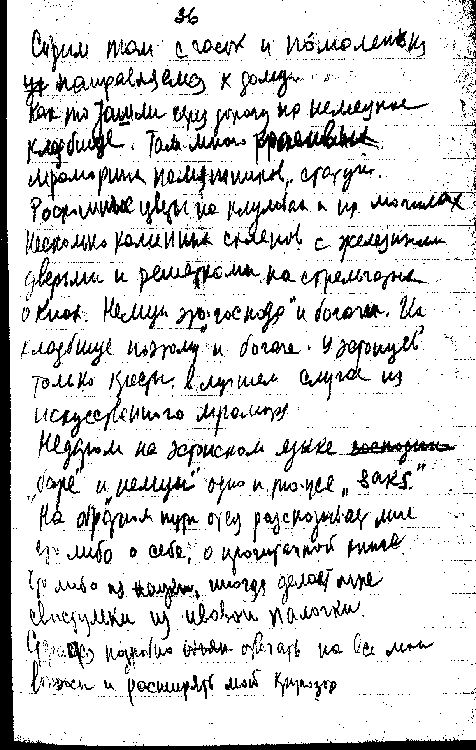 26
Сидим там с часок и помаленьку
направляемся к дому.
Как то зашли через дорогу на немецкое
кладбище. Там много красивых
мраморных памятников, статуи.
Роскошные цветы на клумбах и на могилах
Несколько каменных склепов с железными
дверьми и решетками на стрельчатых
окнах. Немцы это "господа" и богачи. Их
кладбище поэтому и богаче. У эстонцев
только кресты в лучшем случае из
искусственного мрамора
Недаром на эстонском языке господин
"баре" и "немцы" одно и тоже "saks".
На обратном пути отец рассказывает мне
что либо о себе, о прочитанной книге
что либо из науки, иногда делает мне
свистульки из ивовой палочки
Стараясь подробно отвечать на все мои
вопросы и расширять мой кругозор